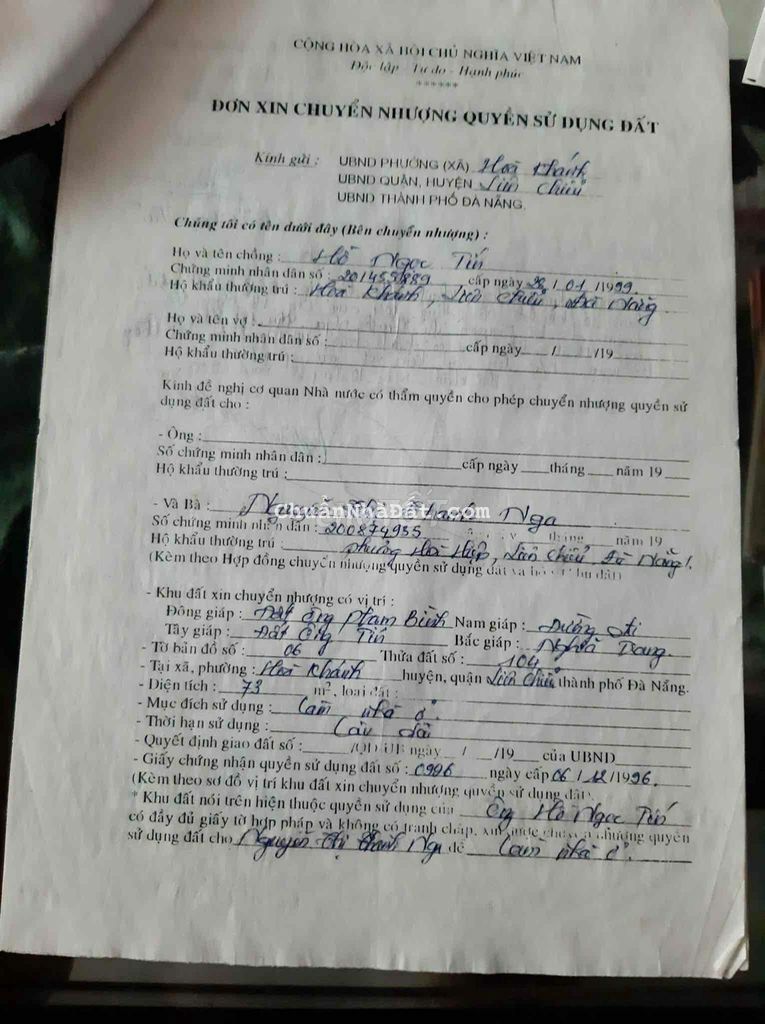 CỘNG HÒA XÃ HỘI CHỦ NGHĨA VIỆT NAM
Độc lập - Tự do - Hạnh phúc
******
ĐƠN XIN CHUYỂN NHƯỢNG QUYỀN SỬ DỤNG ĐẤT
Kính gửi : UBND PHƯỜNG (XÃ) Hoà Khánh
UBND QUẬN, HUYỆN Liên Chiểu
UBND THÀNH PHỐ ĐÀ NẴNG.
Chúng tôi có tên dưới đây (Bên chuyển nhượng) :
Họ và tên chồng : Hồ Ngọc Tín
Chứng minh nhân dân số : cấp ngày 28/01/1999.
Hộ khẩu thường trú : Hoà Khánh, Liên Chiểu, Đà Nẵng
Họ và tên vợ :
Chứng minh nhân dân số : cấp ngày / /19
Hộ khẩu thường trú :
Kính đề nghị cơ quan Nhà nước có thẩm quyền cho phép chuyển nhượng quyền sử
dụng đất cho :
- Ông :
Số chứng minh nhân dân : cấp ngày tháng năm 19
Hộ khẩu thường trú :
- Và Bà : Nguyễn Thị Thanh Nga
ChuẩnNhàĐất.com
Số chứng minh nhân dân : 200874935 tháng năm 19
Hộ khẩu thường trú : phường Hoà Hiệp, Liên Chiểu, Đà Nẵng.
(Kèm theo Hợp đồng chuyển nhượng quyền sử dụng đất và hồ sơ khu đất)
- Khu đất xin chuyển nhượng có vị trí :
Đông giáp : Đất Ông Phạm Bình Nam giáp : Đường đi
Tây giáp : Đất Ông Tín Bắc giáp : Nghĩa Trang.
- Tờ bản đồ số : 06 Thửa đất số : 104
- Tại xã, phường : Hoà Khánh huyện, quận Liên Chiểu thành phố Đà Nẵng.
- Diện tích : 73 m², loại đất :
- Mục đích sử dụng : Làm nhà ở.
- Thời hạn sử dụng : Lâu dài
- Quyết định giao đất số : /QĐ-UB ngày / /19 của UBND
- Giấy chứng nhận quyền sử dụng đất số : 0996 ngày cấp 06/12/1996.
(Kèm theo sơ đồ vị trí khu đất xin chuyển nhượng quyền sử dụng đất).
* Khu đất nói trên hiện thuộc quyền sử dụng của Ông Hồ Ngọc Tín
có đầy đủ giấy tờ hợp pháp và không có tranh chấp, xin được chuyển nhượng quyền
sử dụng đất cho Nguyễn Thị Thanh Nga để Làm nhà ở.